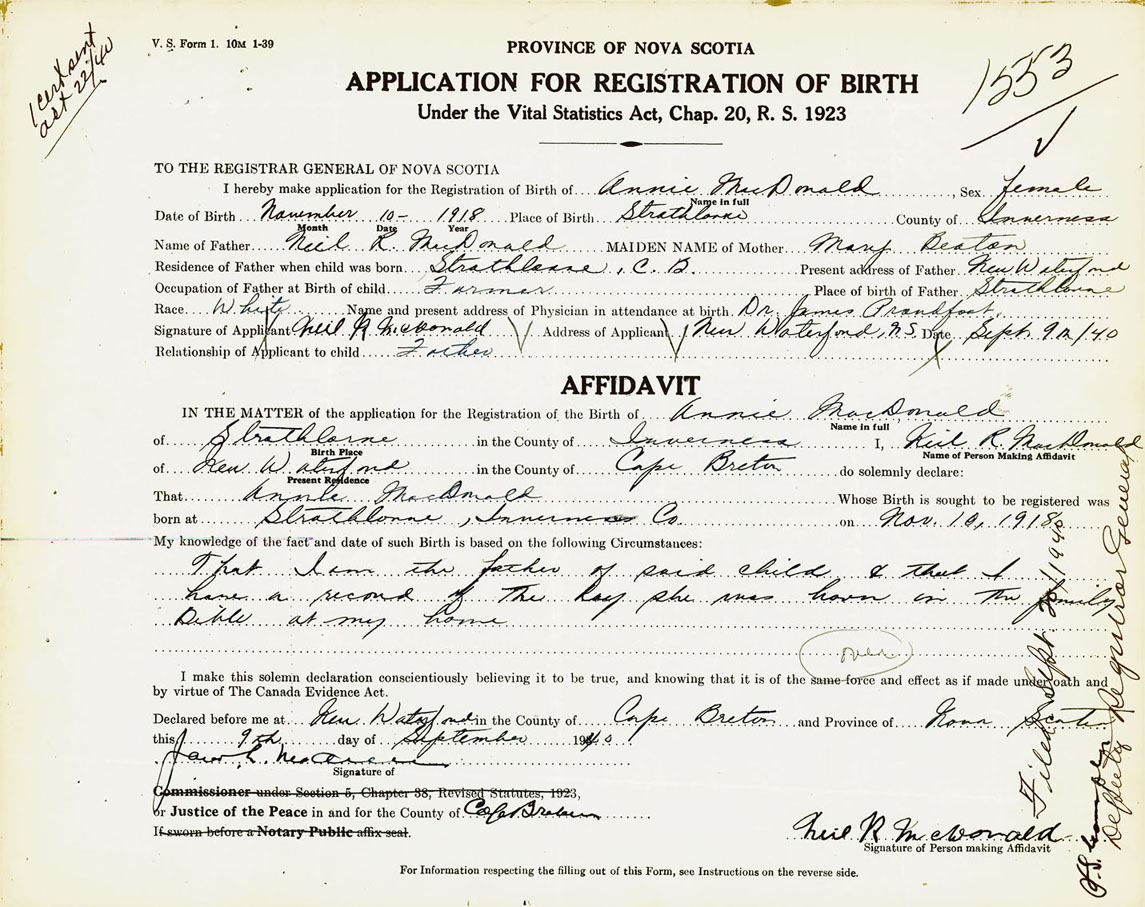 V. S. Form 1. 10M 1-39
1 cert sent
oct 22/40
1553
PROVINCE OF NOVA SCOTIA
APPLICATION FOR REGISTRATION OF BIRTH
Under the Vital Statistics Act, Chap. 20, R. S. 1923
TO THE REGISTRAR GENERAL OF NOVA SCOTIA
I hereby make application for the Registration of Birth of Annie MacDonald, Sex female
Name in full
Date of Birth November 10- 1918 Place of Birth Strathlorne County of Inverness
Month Date Year
Name of Father Neil R. MacDonald MAIDEN NAME of Mother Mary Beaton
Residence of Father when child was born Strathlorne, C. B. Present address of Father New Waterford
Occupation of Father at Birth of child Farmer Place of birth of Father Strathlorne
Race White Name and present address of Physician in attendance at birth Dr. James Proudfoot
Signature of Applicant Neil R McDonald Address of Applicant New Waterford, N.S. Date Sept. 9th/40
Relationship of Applicant to child Father
AFFIDAVIT
IN THE MATTER of the application for the Registration of the Birth of Annie MacDonald
Name in full
of Strathlorne in the County of Inverness I, Neil R. MacDonald
Birth Place Name of Person Making Affidavit
of New Waterford in the County of Cape Breton do solemnly declare:
Present Residence
That Annie MacDonald Whose Birth is sought to be registered was
born at Strathlorne, Inverness Co. on Nov. 10, 1918
My knowledge of the fact and date of such Birth is based on the following Circumstances:
That I am the father of said child & that I
have a record of the day she was born in the family
Bible at my home
over
I make this solemn declaration conscientiously believing it to be true, and knowing that it is of the same force and effect as if made under oath and
by virtue of The Canada Evidence Act.
Declared before me at New Waterford in the County of Cape Breton and Province of Nova Scotia
this 9th day of September 1940
Signature of
Commissioner under Section 5, Chapter 38, Revised Statutes, 1923,
or Justice of the Peace in and for the County of Cape Breton
If sworn before a Notary Public affix seal.
Neil R McDonald
Signature of Person making Affidavit
For Information respecting the filling out of this Form, see Instructions on the reverse side.
Filed Sept. 1940
Deputy Registrar General